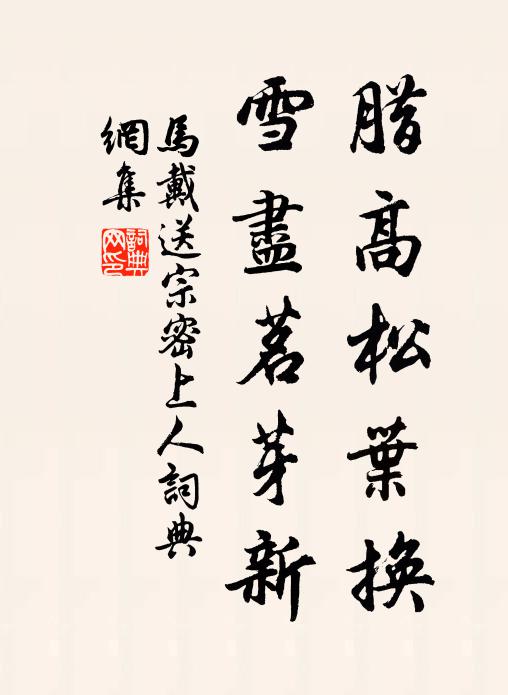 腊高松葉換
雪盡茗芽新
馬戴送宗密上人詞典
網集
詞典
网印